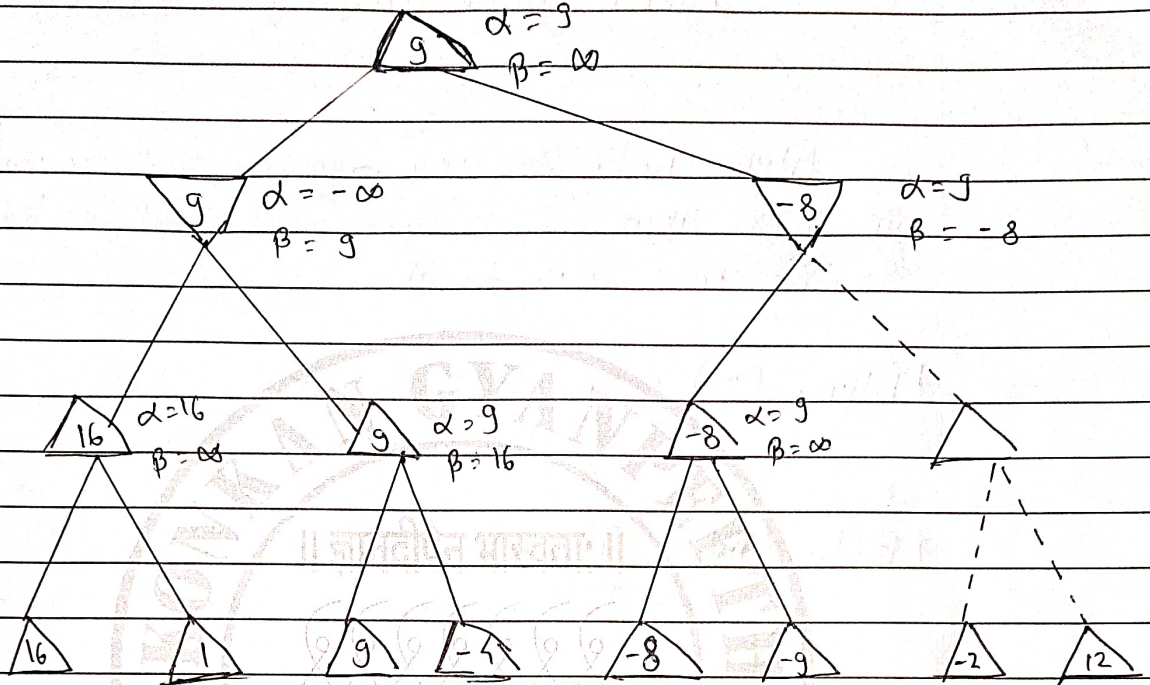 9 α = 9
β = ∞
9 α = -∞
β = 9
-8 α = 9
β = -8
16 α = 16
β = ∞
9 α = 9
β = 16
-8 α = 9
β = ∞
16 1 9 -4 -8 -9 -2 12
GYAN